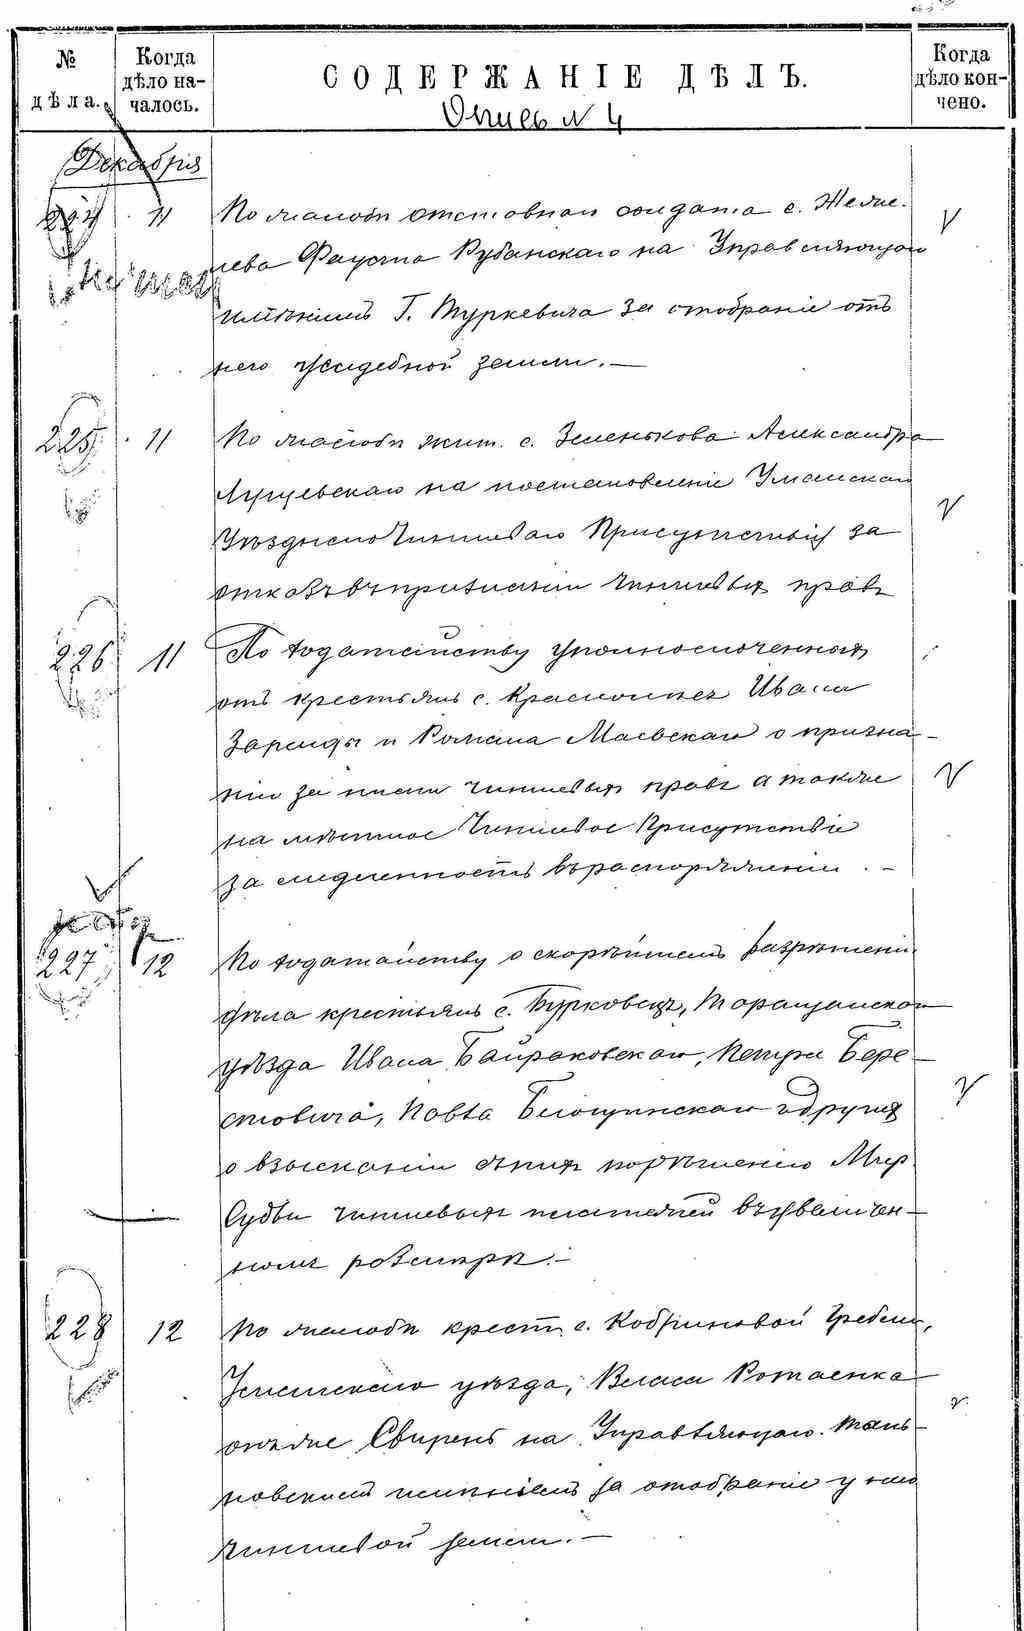 № дѣла.
Когда дѣло началось.
СОДЕРЖАНІЕ ДѢЛЪ.
Когда дѣло кончено.
Опись N 4
Декабря
224 11 По жалобѣ отставнаго солдата с. Желяе-
лева Фауста Рубанскаго на Управляющаго
имѣніемъ Г. Туркевича за отобраніе отъ
него усадебной земли. —
225 11 По жалобѣ жит. с. Зеленькова Александра
на постановленіе Уманскаго
Уѣзднаго Чиншеваго Присутствія за
отказъ въ признаніи чиншевыхъ правъ
226 11 По ходатайству уполномоченныхъ
отъ крестьянъ с. Краснополки Ивана
Зариды и Романа Маевскаго о призна-
ніи за ними чиншевыхъ правъ а также
на мѣстное Чиншевое Присутствіе
за медленность въ распоряженіи. —
227 12 По ходатайству о скорѣйшемъ разрѣшеніи
дѣла крестьянъ с. Бурковецъ, Таращанскаго
уѣзда Ивана Байраковскаго, Петра Бере-
стовича, Павла Белошинскаго и другихъ
о взысканіи съ нихъ по рѣшенію Мир.
Судьи чиншевыхъ платежей въ увеличен-
номъ размѣрѣ. —
228 12 По жалобѣ крест. с. Кобриновой Гребли,
Уманскаго уѣзда, Власа Ротаенка
онъ же Свирень на Управляющаго Таль-
новскимъ имѣніемъ за отобраніе у него
чиншевой земли. —